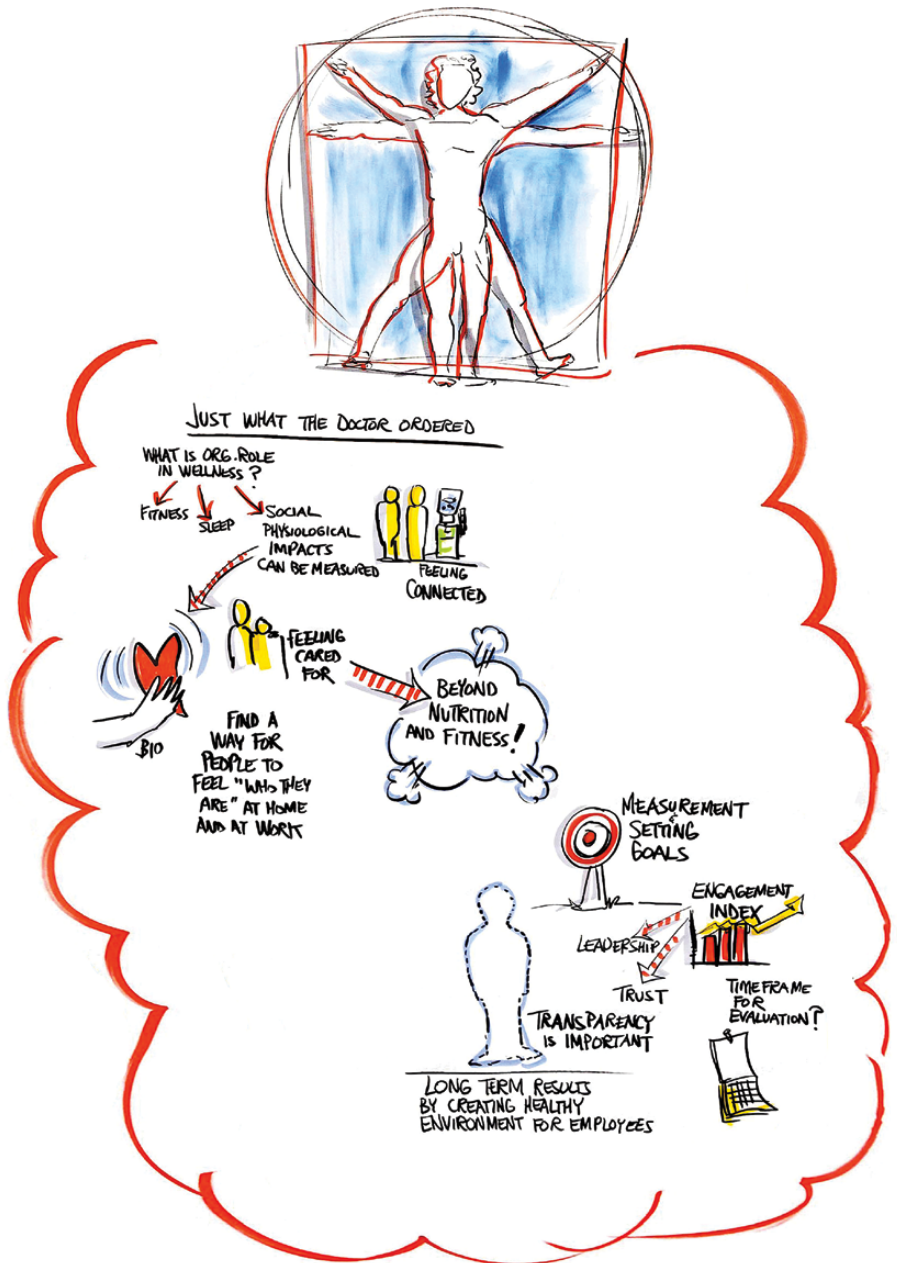 JUST WHAT THE DOCTOR ORDERED
WHAT IS ORG. ROLE
IN WELLNESS?
FITNESS
SLEEP
SOCIAL
PHYSIOLOGICAL
IMPACTS
CAN BE MEASURED
FEELING
CONNECTED
BIO
FEELING
CARED
FOR
FIND A
WAY FOR
PEOPLE TO
FEEL "WHO THEY
ARE" AT HOME
AND AT WORK
BEYOND
NUTRITION
AND FITNESS!
MEASUREMENT
&
SETTING
GOALS
ENGAGEMENT
INDEX
LEADERSHIP
TRUST
TRANSPARENCY
IS IMPORTANT
TIMEFRAME
FOR
EVALUATION?
LONG TERM RESULTS
BY CREATING HEALTHY
ENVIRONMENT FOR EMPLOYEES